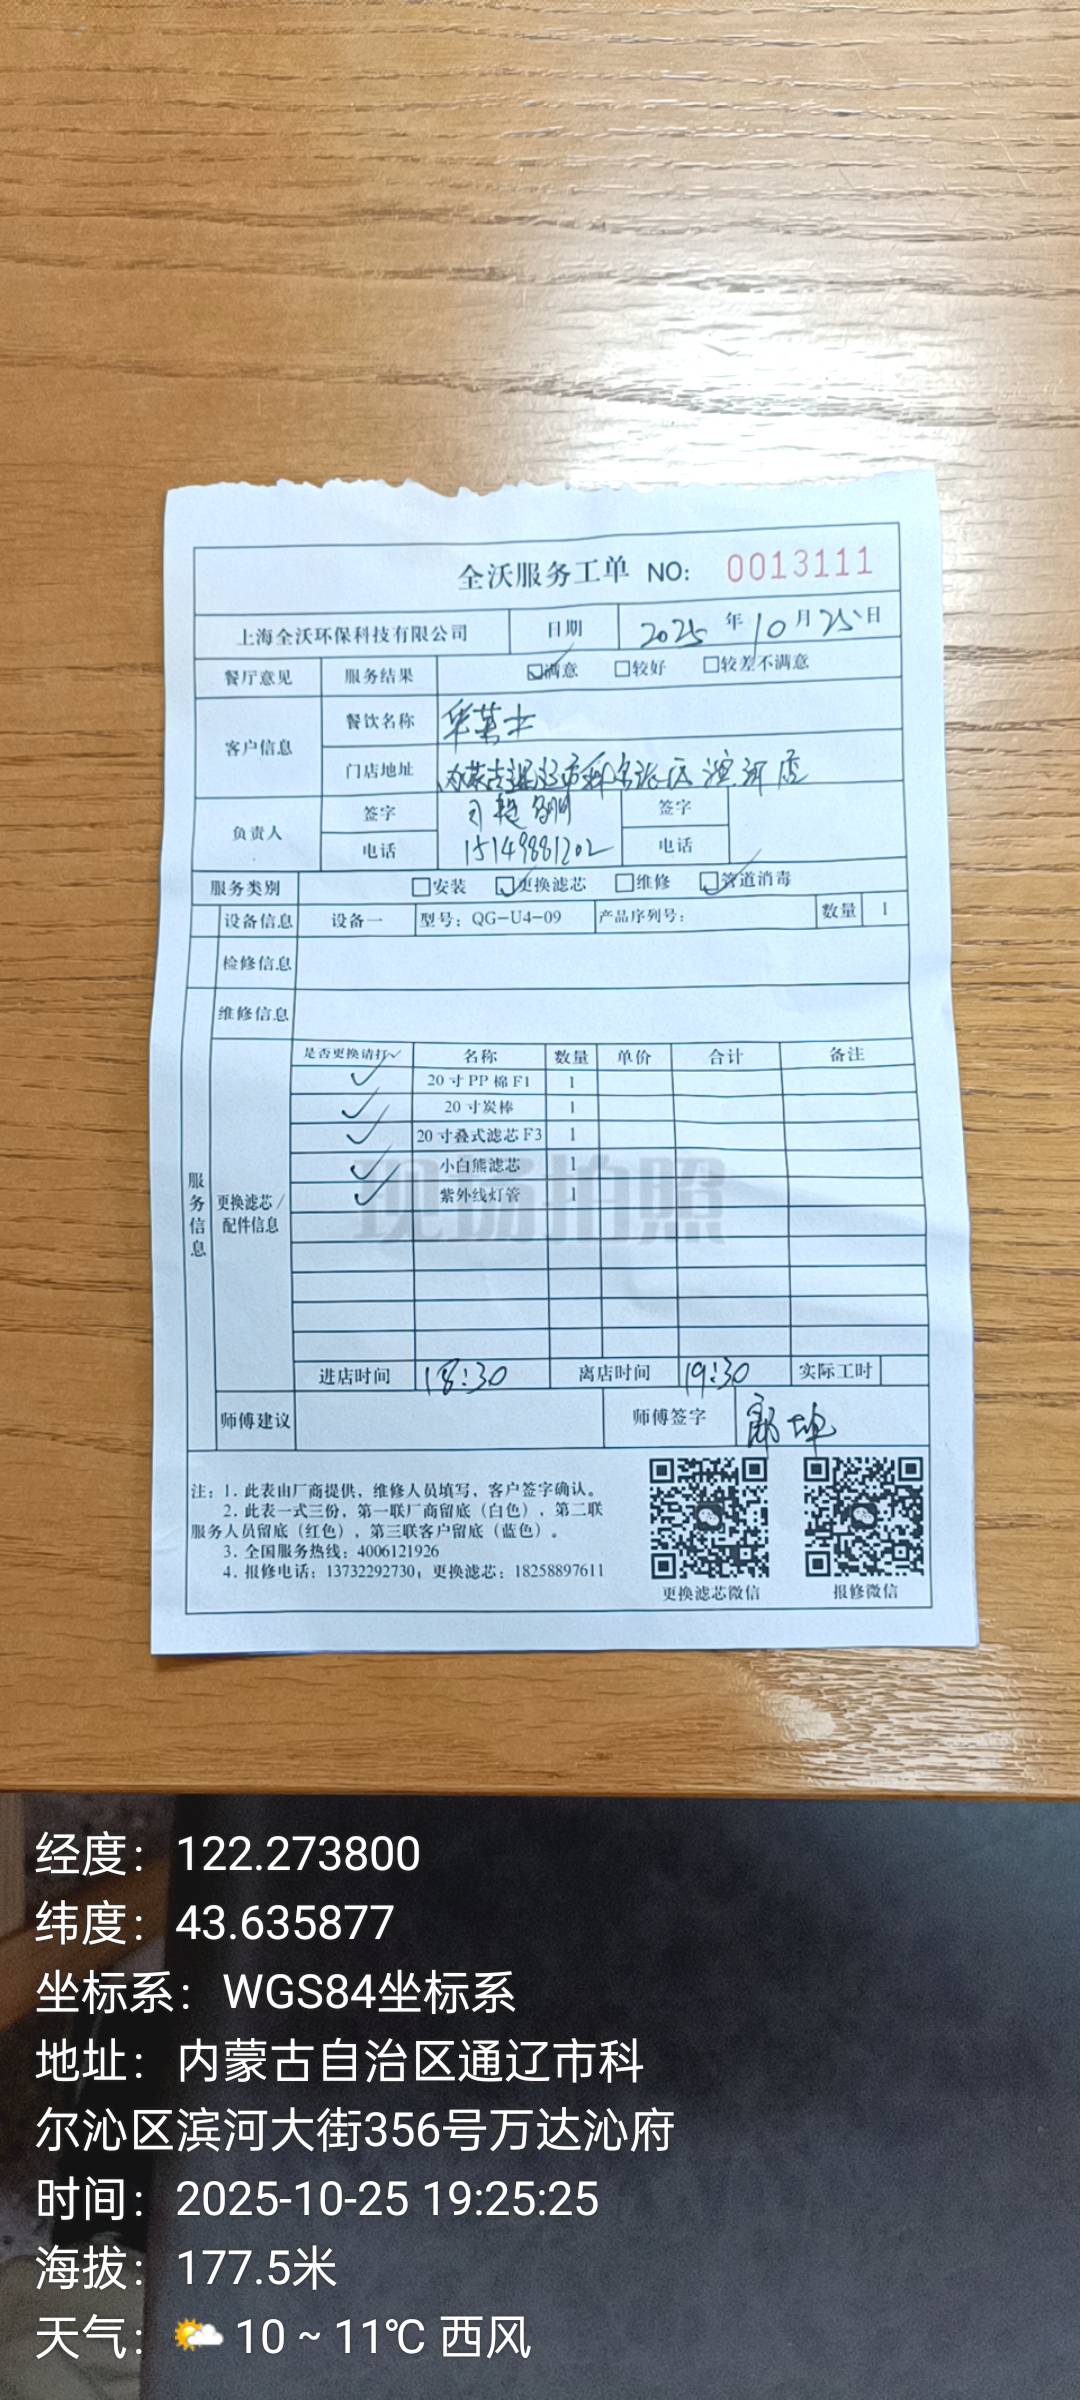 全沃服务工单 NO: 0013111
上海全沃环保科技有限公司 日期 2025 年 10 月 25 日
餐厅意见 服务结果 ☑满意 □较好 □较差不满意
客户信息 餐饮名称 华莱士
门店地址 内蒙古通辽市科尔沁区滨河店
负责人 签字 签字
电话 15149881202 电话
服务类别 □安装 ☑更换滤芯 □维修 ☑管道消毒
设备信息 设备一 型号：QG-U4-09 产品序列号： 数量 1
检修信息
维修信息
服务信息 更换滤芯/配件信息
是否更换请打✓ 名称 数量 单价 合计 备注
✓ 20寸PP棉F1 1
✓ 20寸炭棒 1
✓ 20寸叠式滤芯F3 1
✓ 小白熊滤芯 1
✓ 紫外线灯管 1
现场拍照
进店时间 18:30 离店时间 19:30 实际工时
师傅建议 师傅签字
注：1. 此表由厂商提供，维修人员填写，客户签字确认。
2. 此表一式三份，第一联厂商留底（白色），第二联
服务人员留底（红色），第三联客户留底（蓝色）。
3. 全国服务热线：4006121926
4. 报修电话：13732292730，更换滤芯：18258897611
更换滤芯微信 报修微信
经度：122.273800
纬度：43.635877
坐标系：WGS84坐标系
地址：内蒙古自治区通辽市科
尔沁区滨河大街356号万达沁府
时间：2025-10-25 19:25:25
海拔：177.5米
天气：10 ~ 11℃ 西风